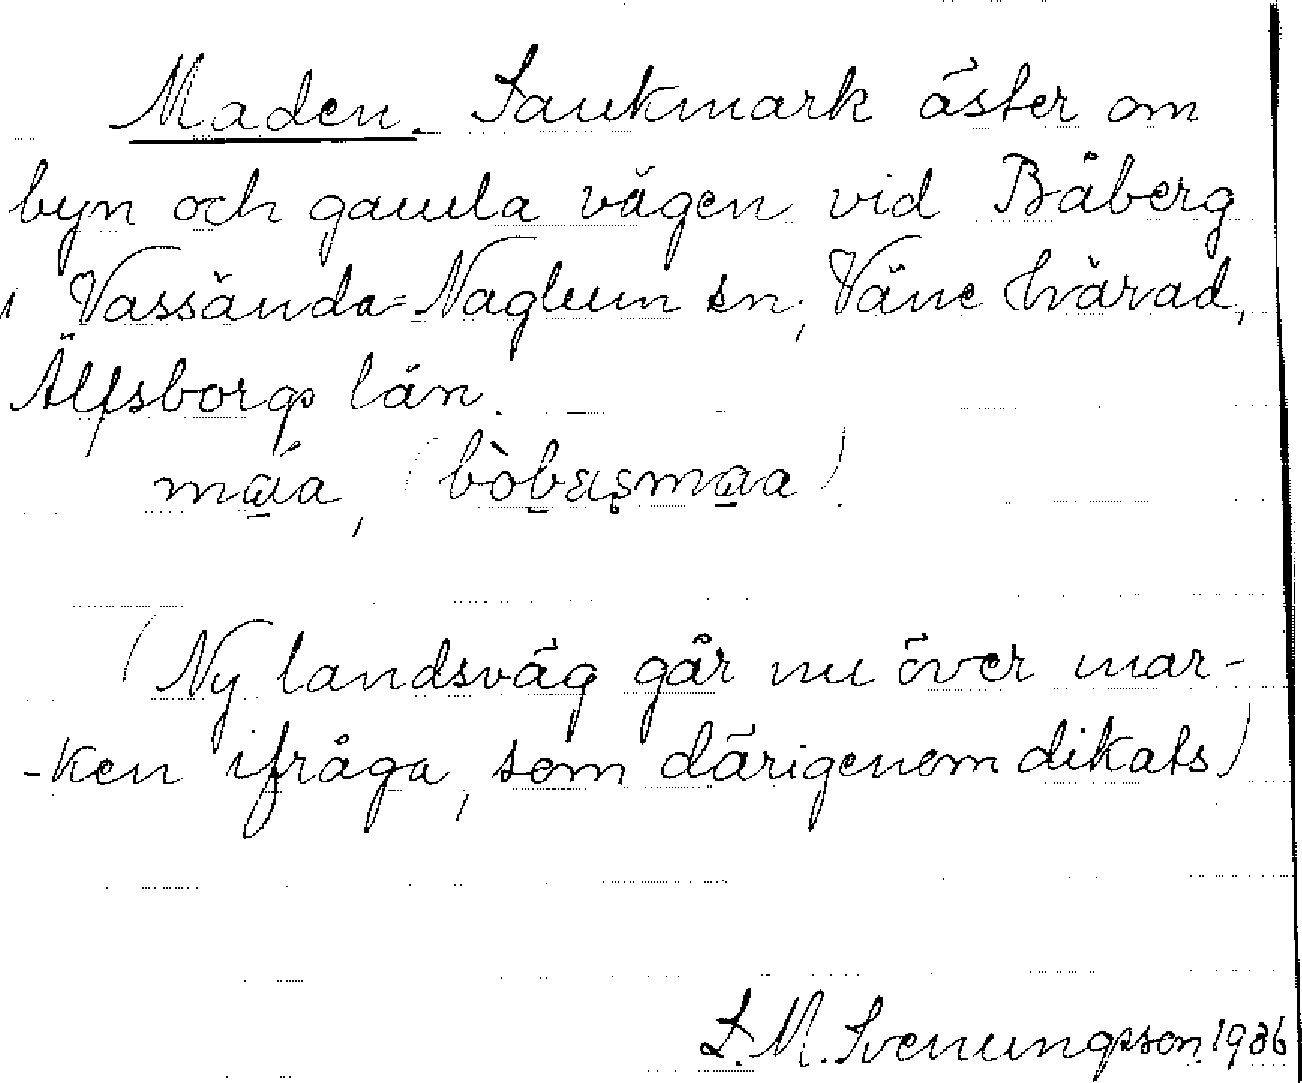 Maden. Sankmark öster om
byn och gamla vägen vid Båberg
i Vassända-Naglum sn, Väne härad,
Älfsborgs län.
má̱a, (bòḇæʂma̱a).
(Ny landsväg går nu över mar-
-ken ifråga, som därigenom dikats)
S. M. Svenungsson. 1936